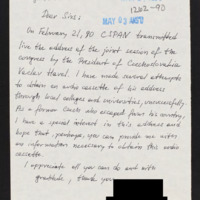 1202-90
MAY 03
Dear Sirs:
On February 21, 90 CSPAN transmitted
live the address of the joint session of the
congress by the President of Czechoslovakia
Vaclav Havel. I have made several attempts
to obtain an audio cassette of his address
through local colleges and universities, unsuccessfully.
As a former Czech who escaped from his country,
I have a special interest in this address and
hope that, perhaps, you can provide me with
information necessary to obtain this audio
cassette.
I appreciate all you can do and with
gratitude, thank you.